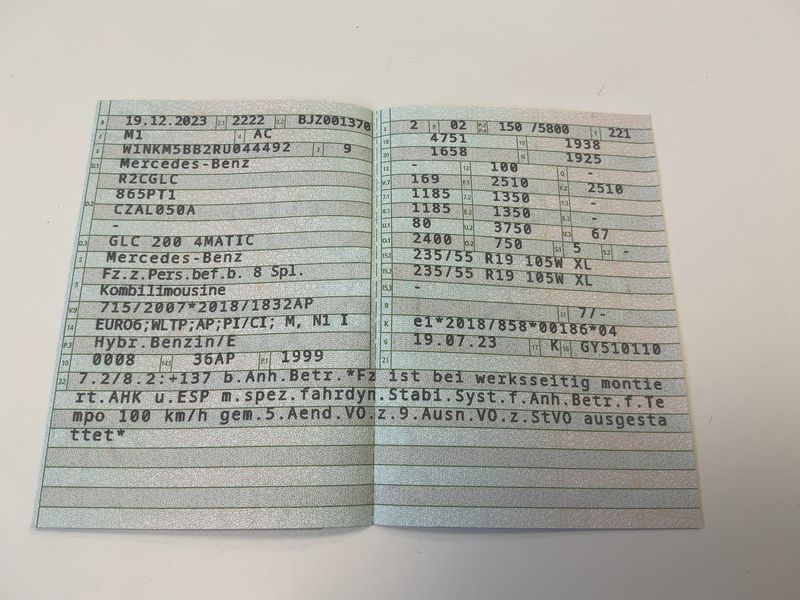 B 19.12.2023 2.1 2222 2.2 BJZ001370
J M1 4 AC
E W1NKM5BB2RU044492 3 9
D.1 Mercedes-Benz
R2CGLC
D.2 865PT1
CZAL050A
-
D.3 GLC 200 4MATIC
2 Mercedes-Benz
5 Fz.z.Pers.bef.b. 8 Spl.
Kombilimousine
V.9 715/2007*2018/1832AP
14 EURO6;WLTP;AP;PI/CI; M, N1 I
P.3 Hybr.Benzin/E
10 0008 14.1 36AP P.1 1999
L 2 9 02 P.2 P.4 150 /5800 T 221
18 4751 19 1938
20 1658 G 1925
12 - 13 100 Q -
V.7 169 F.1 2510 F.2 2510
7.1 1185 7.2 1350 7.3 -
8.1 1185 8.2 1350 8.3 -
U.1 80 U.2 3750 U.3 67
O.1 2400 O.2 750 S.1 5 S.2 -
15.1 235/55 R19 105W XL
15.2 235/55 R19 105W XL
15.3 -
R 11 7/-
K e1*2018/858*00186*04
6 19.07.23 17 K 16 GY510110
21
22 7.2/8.2:+137 b.Anh.Betr.*Fz ist bei werksseitig montie
rt.AHK u.ESP m.spez.fahrdyn.Stabi.Syst.f.Anh.Betr.f.Te
mpo 100 km/h gem.5.Aend.VO.z.9.Ausn.VO.z.StVO ausgesta
ttet*